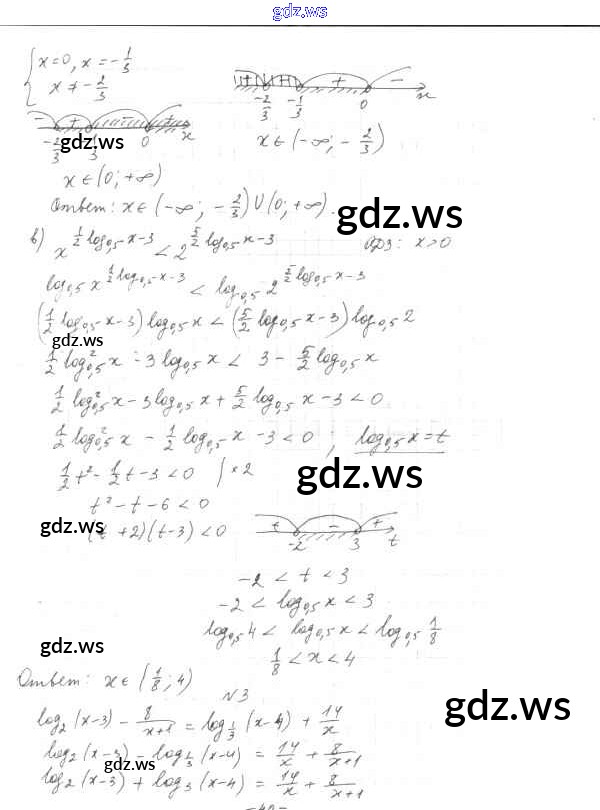 gdz.ws
{ x=0, x=-1/3
x≠-2/3
+ -
-2/3 -1/3 0 x
- + - +
gdz.ws
-2/3 -1/3 0 x
x∈(-∞; -2/3)
x∈(0; +∞)
Ответ: x∈(-∞; -2/3)∪(0; +∞).
gdz.ws
в) x^(1/2 log₀,₅x-3) < 2^(5/2 log₀,₅x-3) ОДЗ: x>0
log₀,₅x^(1/2 log₀,₅x-3) < log₀,₅2^(5/2 log₀,₅x-3)
(1/2 log₀,₅x-3)log₀,₅x < (5/2 log₀,₅x-3)log₀,₅2
gdz.ws
1/2 log²₀,₅x - 3log₀,₅x < 3 - 5/2 log₀,₅x
1/2 log²₀,₅x - 3log₀,₅x + 5/2 log₀,₅x - 3 < 0
1/2 log²₀,₅x - 1/2 log₀,₅x - 3 < 0 ; log₀,₅x = t
1/2 t² - 1/2 t - 3 < 0 | ×2
gdz.ws
t² - t - 6 < 0
gdz.ws
(t+2)(t-3) < 0
+ - +
-2 3 t
-2 < t < 3
-2 < log₀,₅x < 3
log₀,₅4 < log₀,₅x < log₀,₅1/8
gdz.ws
1/8 < x < 4
Ответ: x∈(1/8; 4)
N3
gdz.ws
log₂(x-3) - 8/(x+1) = log₁/₃(x-4) + 14/x
log₂(x-3) - log₁/₃(x-4) = 14/x + 8/(x+1)
gdz.ws
log₂(x-3) + log₃(x-4) = 14/x + 8/(x+1)